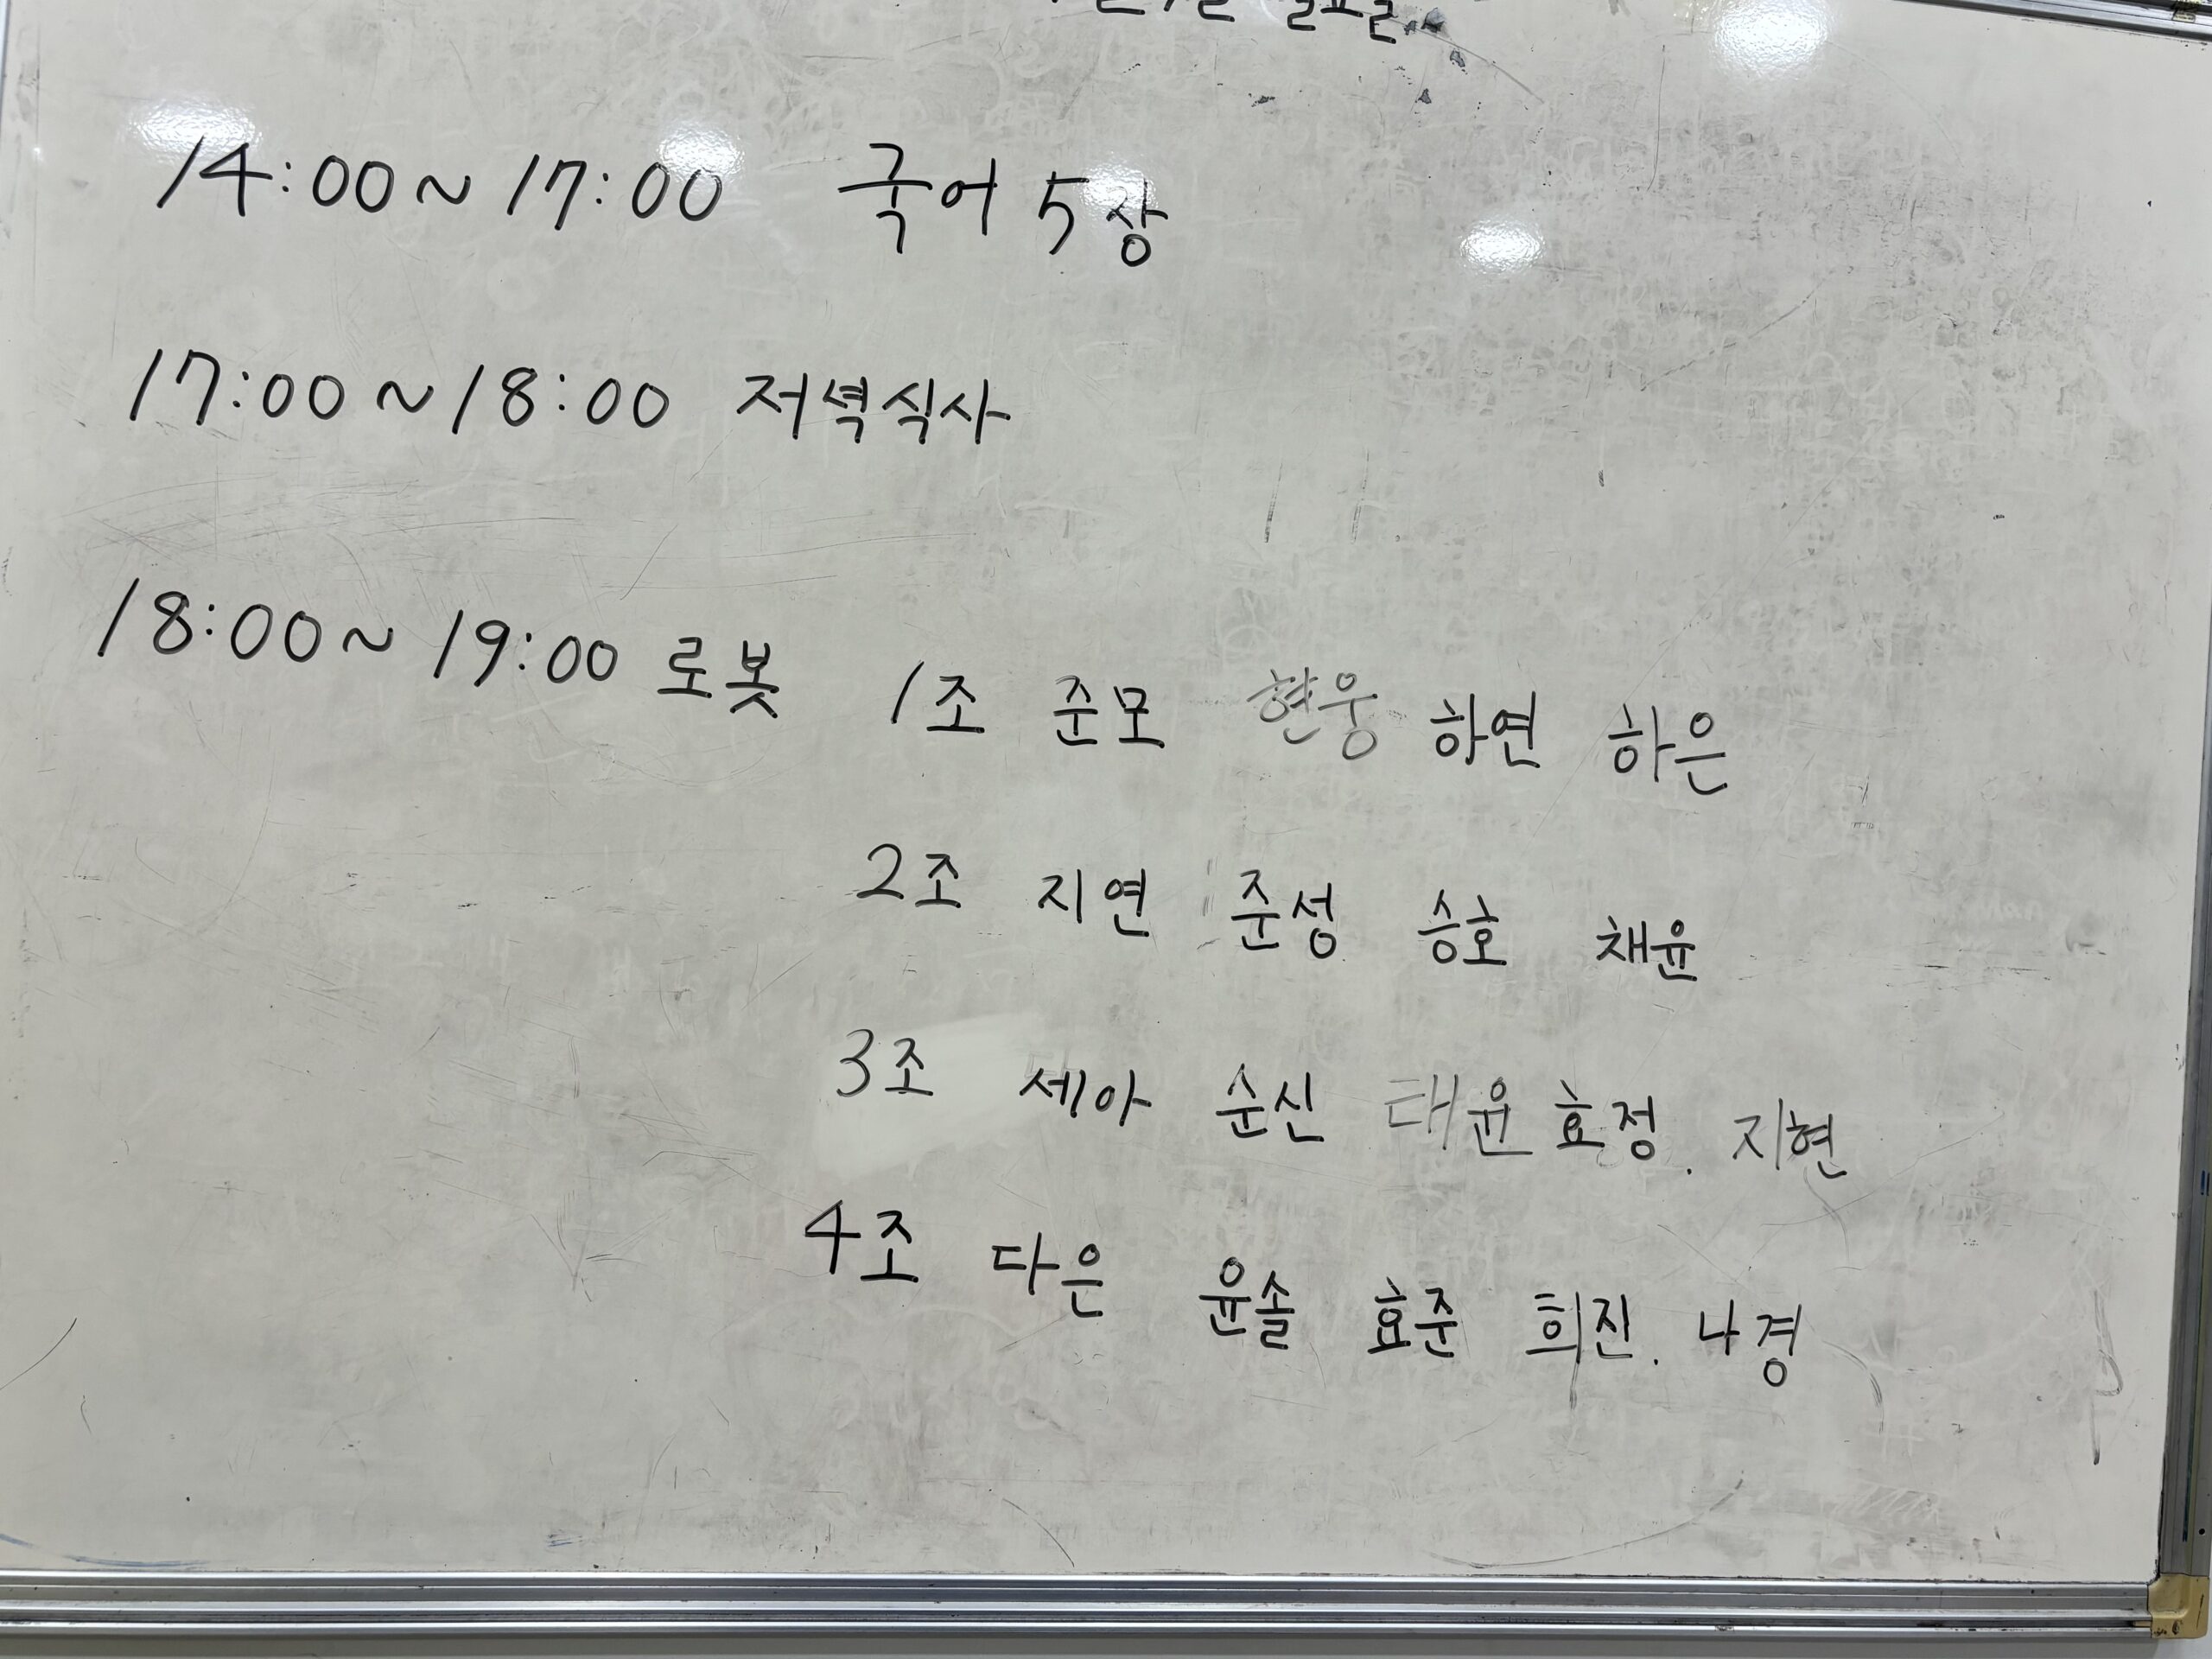 14:00 ~ 17:00 국어 5상
17:00 ~ 18:00 저녁식사
18:00 ~ 19:00 로봇 1조 준모 현웅 하연 하은
2조 지연 준성 승호 채윤
3조 세아 순신 태윤 효정. 지현
4조 다은 윤솔 효준 희진. 나경